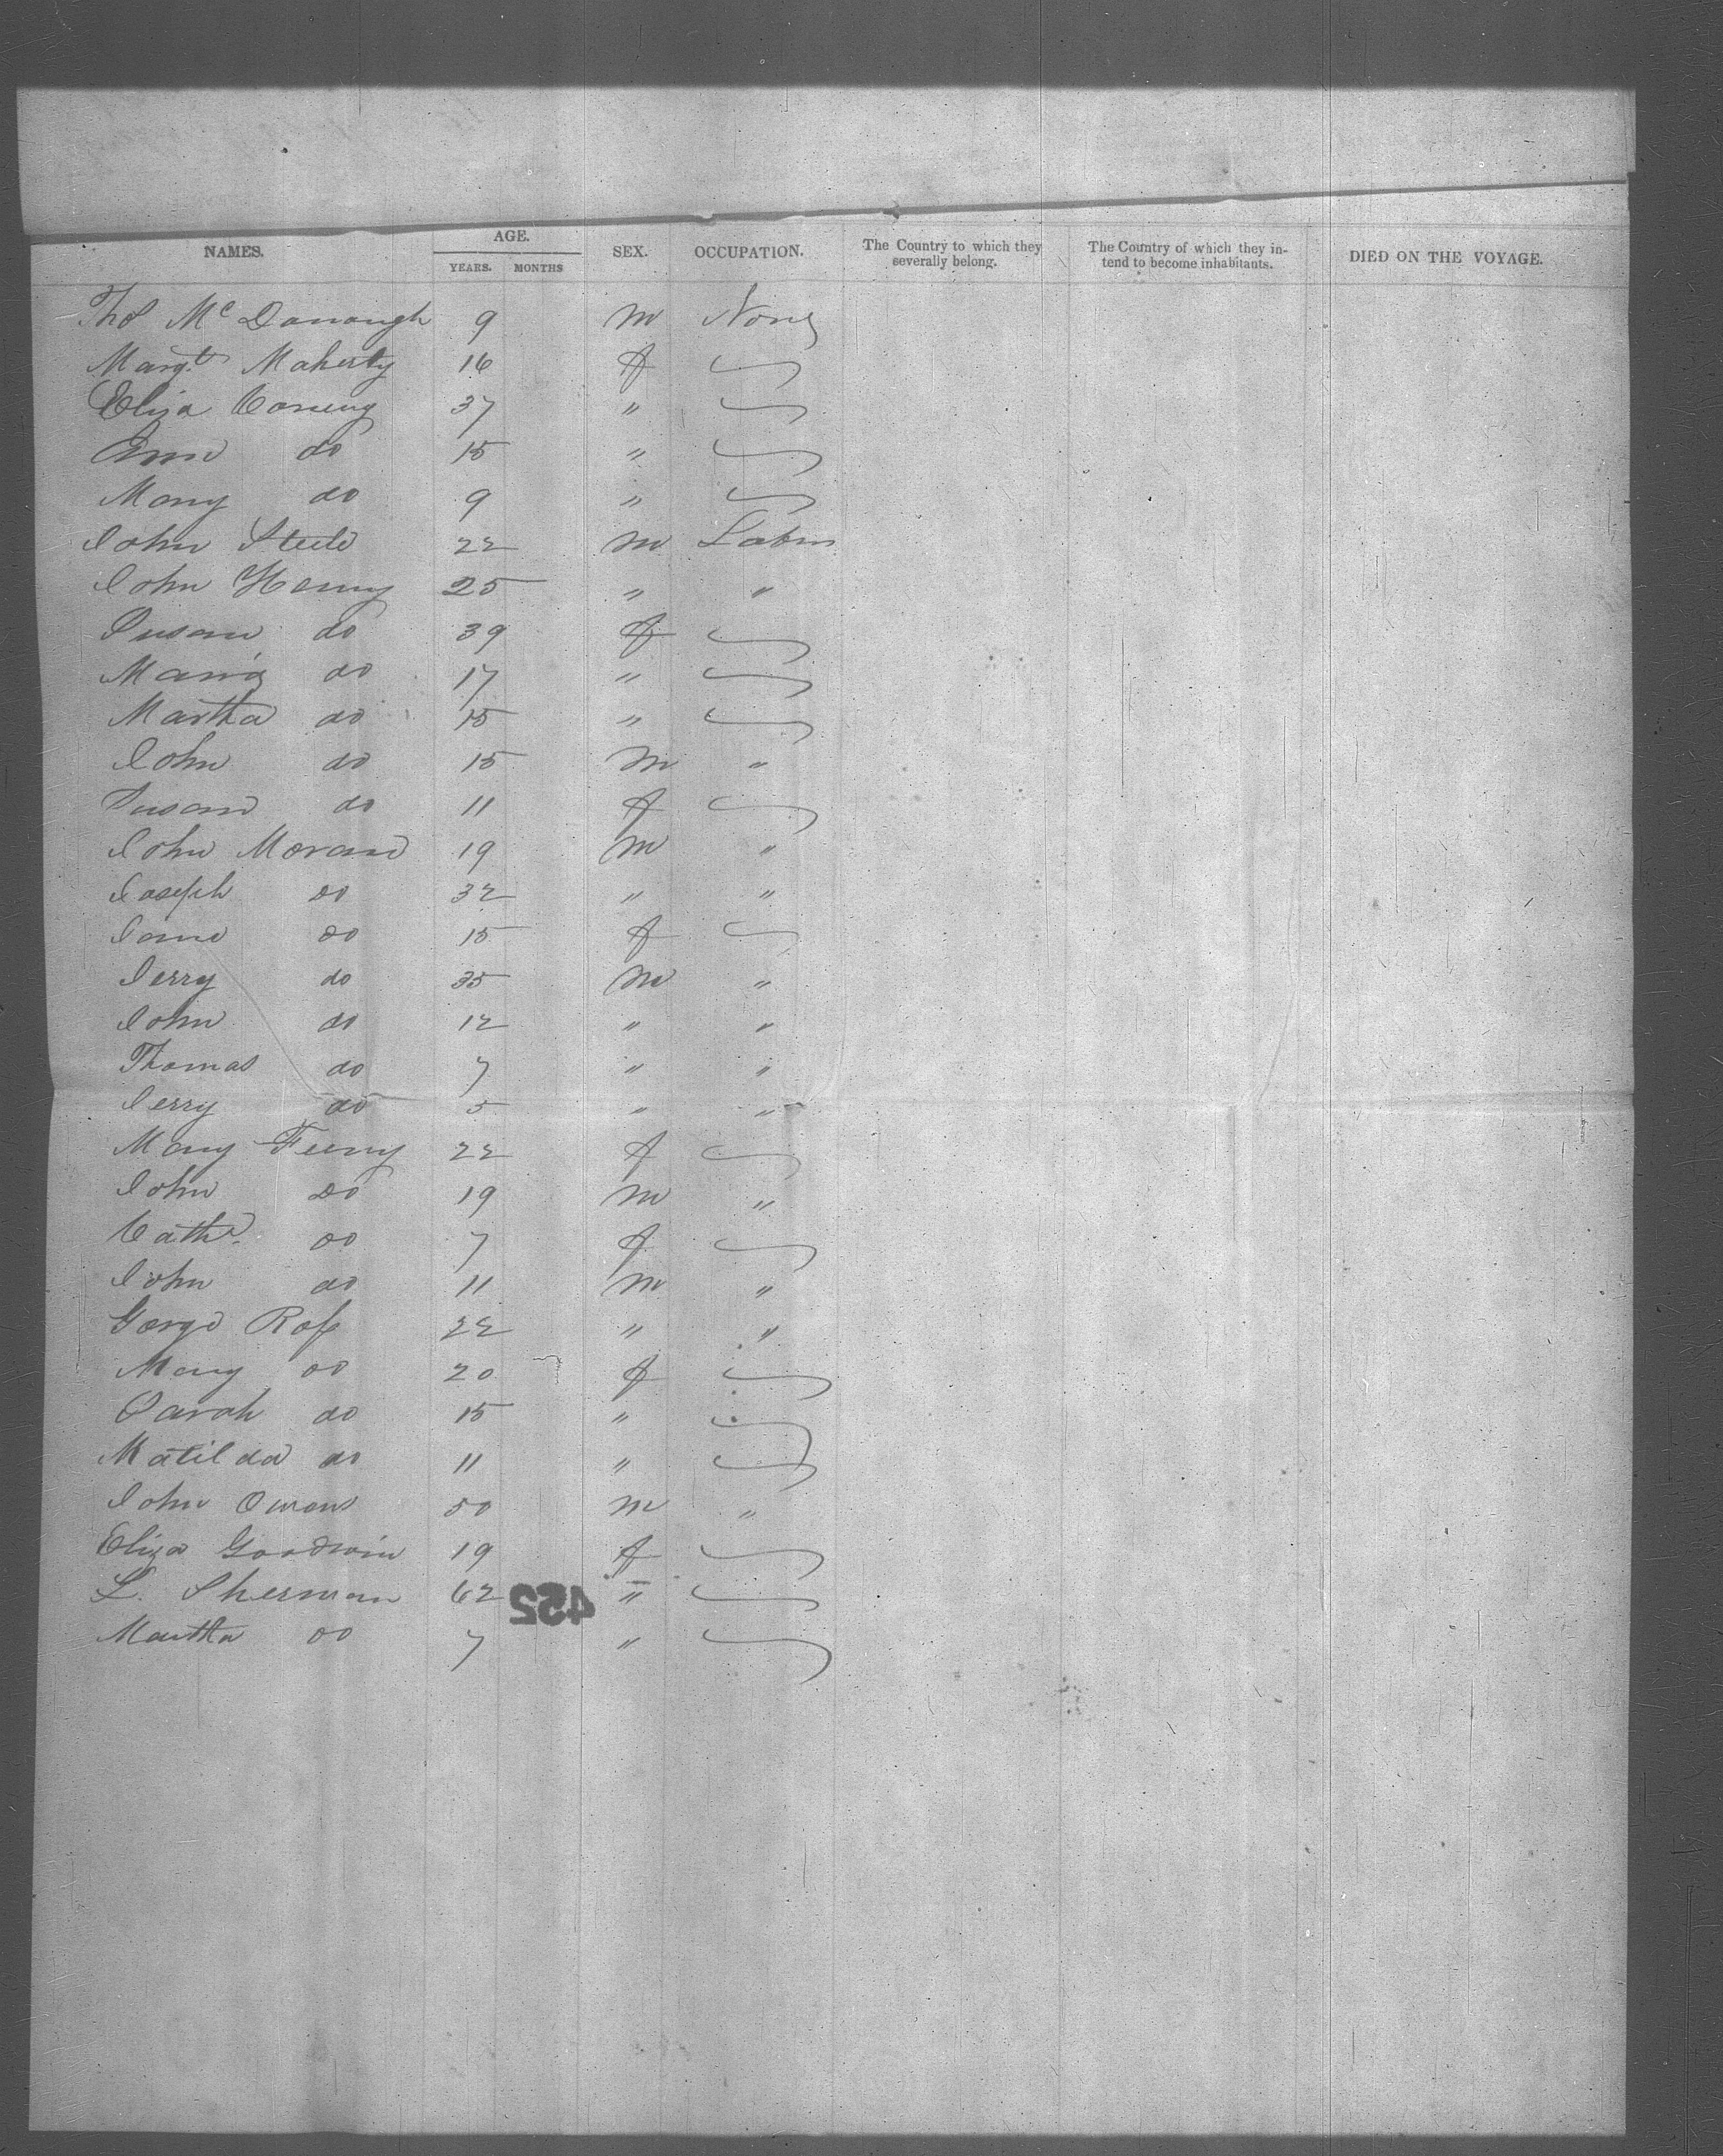 NAMES. AGE. SEX. OCCUPATION. The Country to which they severally belong. The Country of which they intend to become inhabitants. DIED ON THE VOYAGE.
YEARS. MONTHS
Thos McDonough 9 m None
Margt Maherty 16 f
Eliza Coneny 37 "
Ann do 15 "
Mary do 9 "
John Steele 22 m Labor
John Henny 25 " "
Susan do 39 f
Maria do 17 "
Martha do 15 "
John do 15 m "
Susan do 11 f
John Moran 19 m "
Joseph do 32 " "
Jane do 15 f
Jerry do 35 m "
John do 12 " "
Thomas do 7 " "
Jerry do 5 " "
Mary Feeny 22 f
John do 19 m "
Cathe. do 7 f
John do 11 m "
George Ross 22 " "
Mary do 20 f
Sarah do 15 "
Matilda do 11 "
John Owens 50 m "
Eliza Goodwin 19 f
L. Sherman 62 "
452
Martha do 7 "